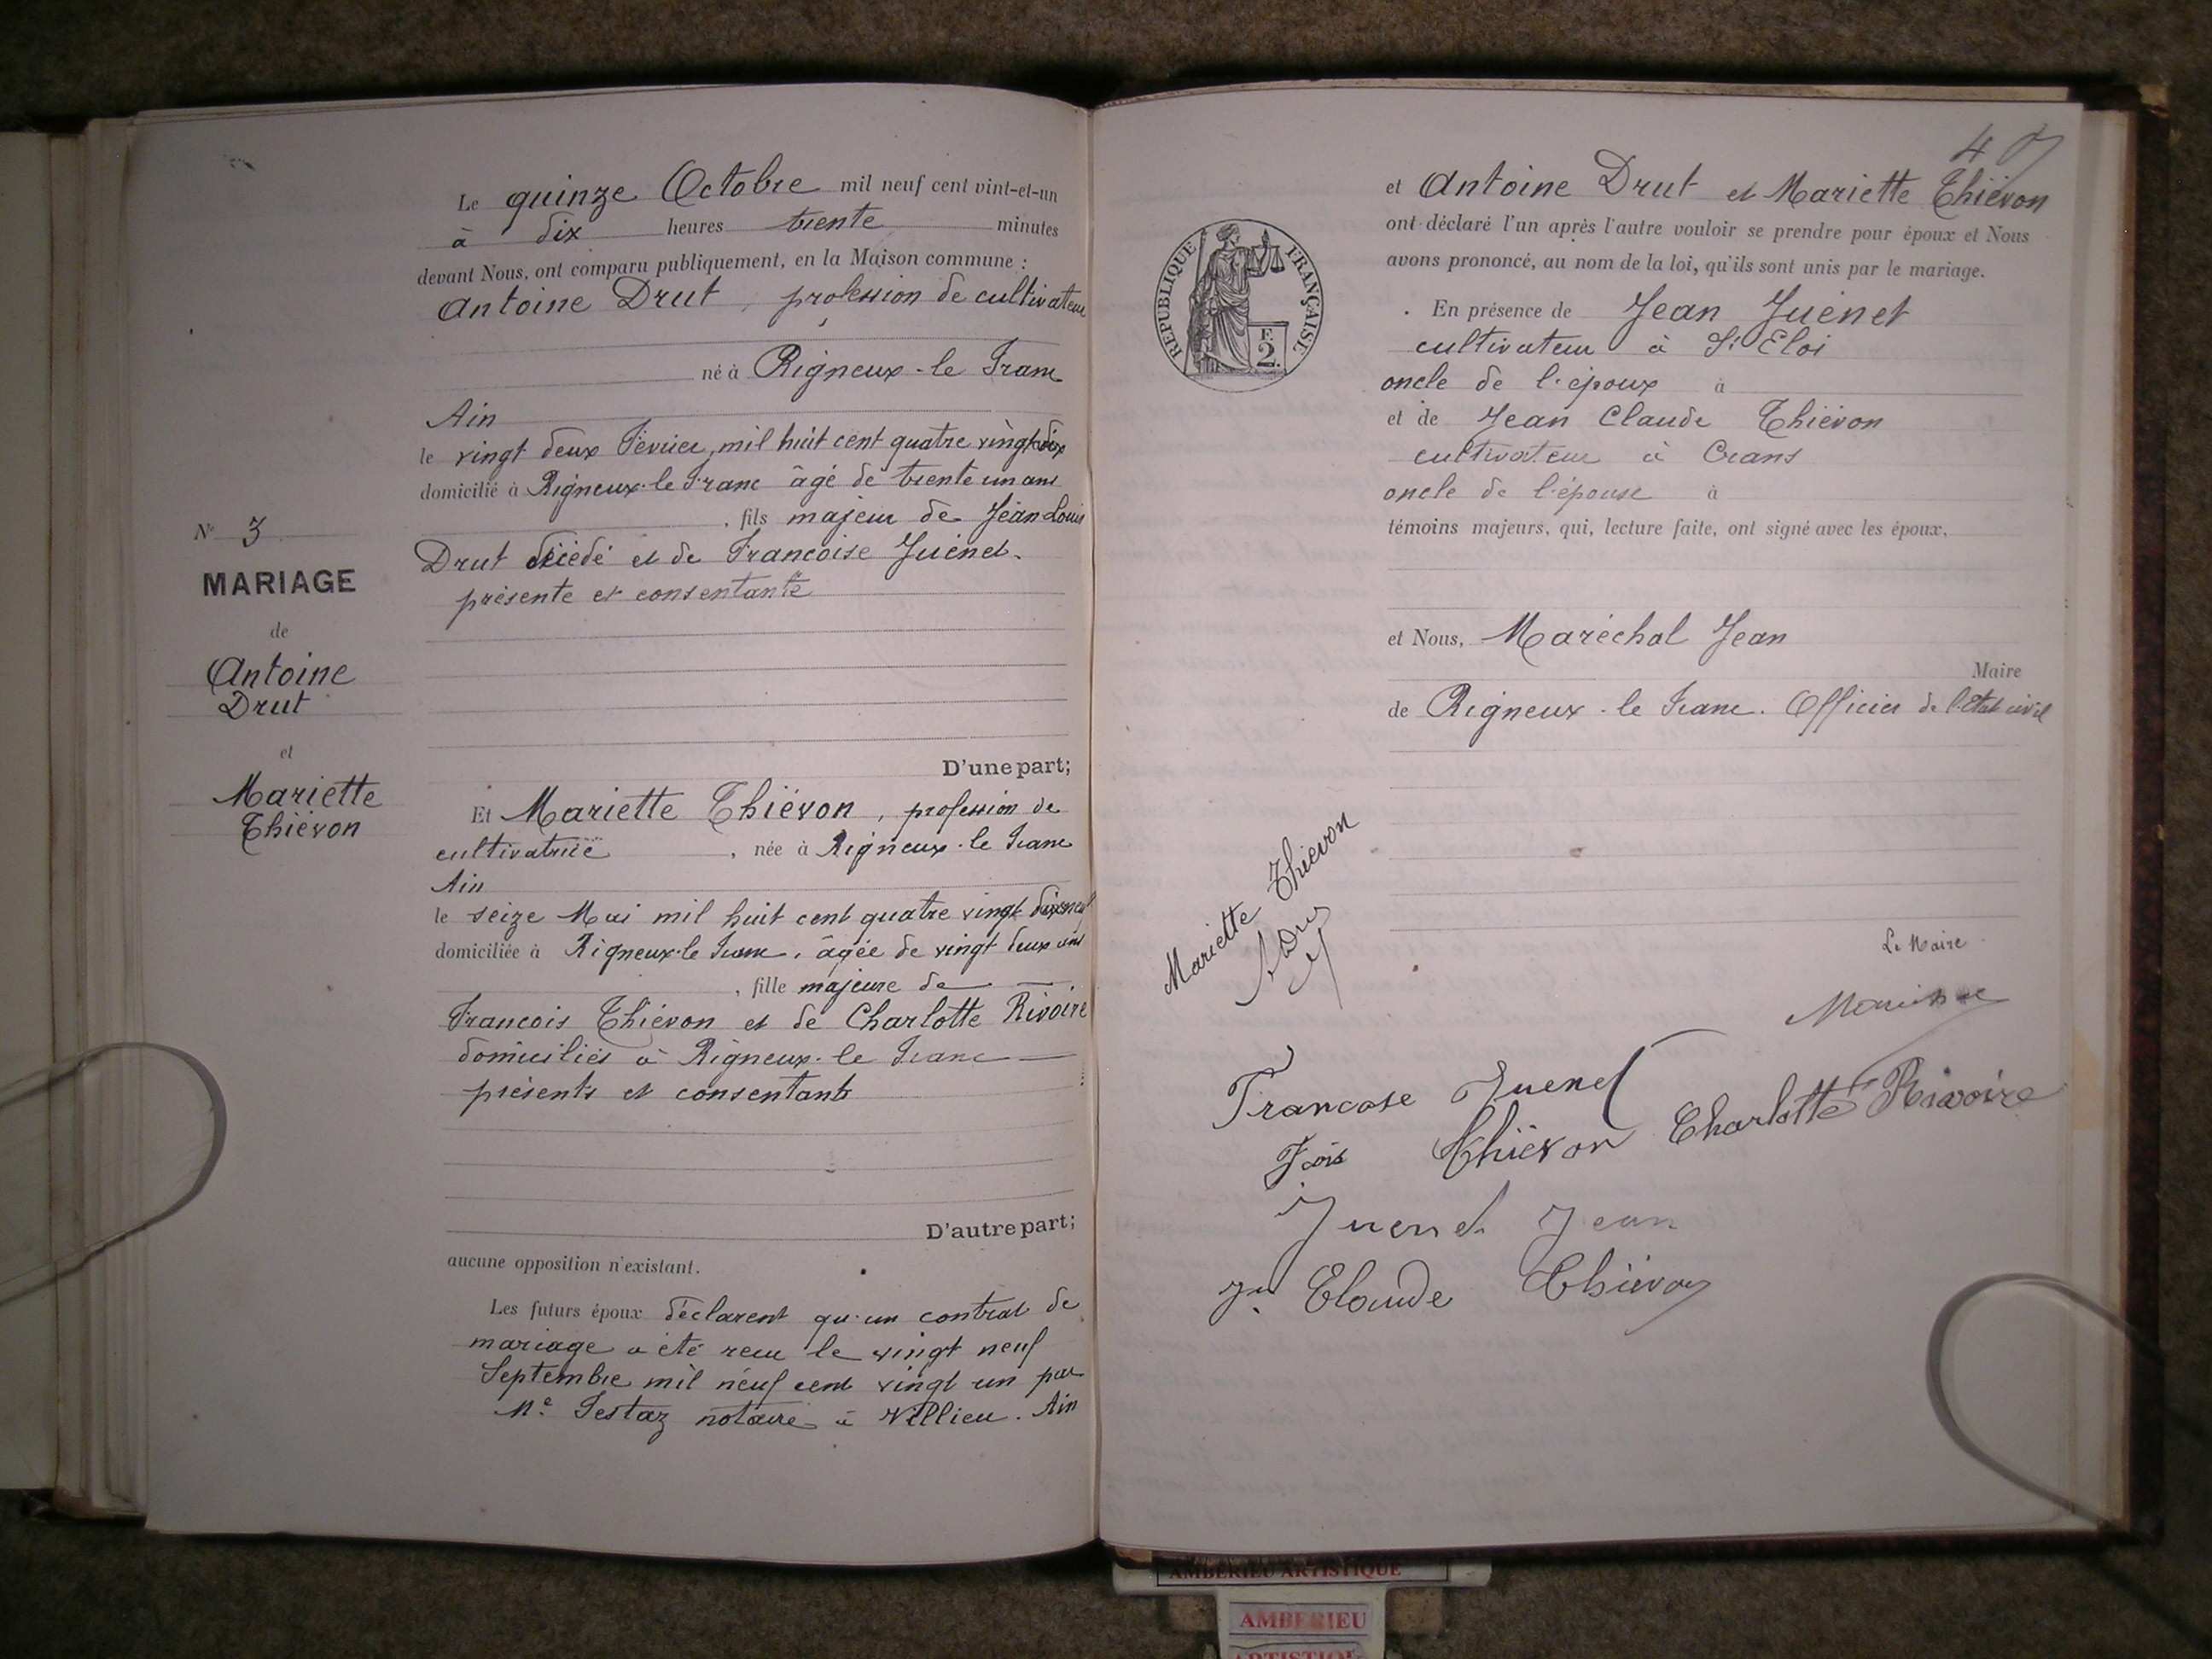 Le quinze Octobre mil neuf cent vint-et-un
à dix heures trente minutes
devant Nous, ont comparu publiquement, en la Maison commune :
Antoine Drut, profession de cultivateur
né à Rigneux-le Franc
Ain
le vingt deux Février, mil huit cent quatre vingt dix
domicilié à Rigneux-le Franc âgé de trente un ans
, fils majeur de Jean Louis
Drut décédé et de Francoise Juénet.
présente et consentante
D'une part;
N° 3
MARIAGE
de
Antoine
Drut
et
Mariette
Thiévon
Et Mariette Thiévon, profession de
cultivatrice, née à Rigneux-le Franc
Ain
le seize Mai mil huit cent quatre vingt dix neuf
domiciliée à Rigneux-le Franc, âgée de vingt deux ans
, fille majeure de
Francois Thiévon et de Charlotte Rivoire
domiciliés à Rigneux-le Franc
présents et consentants
D'autre part;
aucune opposition n'existant.
Les futurs époux déclarent qu'un contrat de
mariage a été recu le vingt neuf
Septembre mil neuf cent vingt un par
Me Testaz notaire à Villieu. Ain
RÉPUBLIQUE FRANÇAISE
F.
2.
et Antoine Drut et Mariette Thiévon
ont déclaré l'un après l'autre vouloir se prendre pour époux et Nous
avons prononcé, au nom de la loi, qu'ils sont unis par le mariage.
En présence de Jean Juénet
cultivateur à St Eloi
oncle de l'époux à
et de Jean Claude Thiévon
cultivateur à Crans
oncle de l'épouse à
témoins majeurs, qui, lecture faite, ont signé avec les époux,
et Nous, Maréchal Jean
Maire
de Rigneux-le Franc. Officier de l'Etat civil
Mariette Thievon
A Drut
Le Maire
Francose Juenet
Fois Thiévon Charlotte Rivoire
Juenet Jean
Jn Claude Thiévon
AMBERIEU ARTISTIQUE
AMBERIEU
ARTISTIQUE